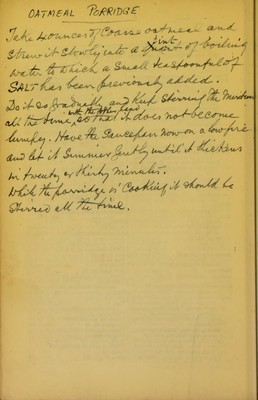 OATMEAL PORRIDGE
Take 2 ounces of Coarse oatmeal and
Strew it slowly into a pint of boiling
water to which a small teaspoonful of
SALT has been previously added.
Do it so gradually and keep stirring the
all the time with the other hand, so that it does not become
lumpy. Have the saucepan now on a low fire
and let it Simmer gently until it thickens
in twenty or thirty minutes.
While the porridge is Cooking it should be
Stirred all the time.